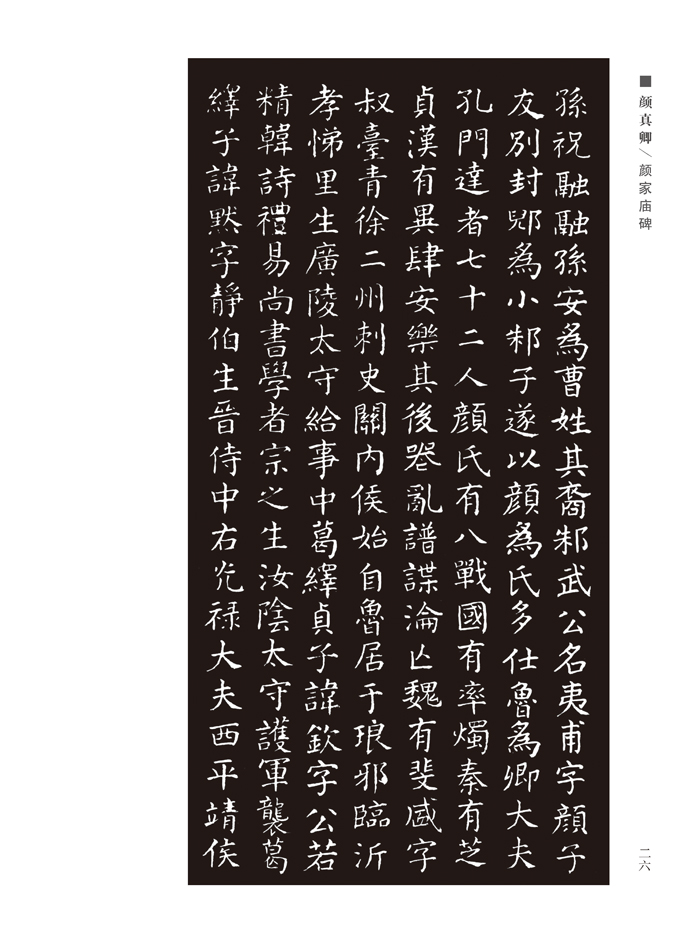 颜真卿／颜家庙碑
孫祝融融孫安為曹姓其裔邾武公名夷甫字顏子
友別封郳為小邾子遂以顏為氏多仕魯為卿大夫
孔門達者七十二人顏氏有八戰國有率燭秦有芝
貞漢有異肆安樂其後喪亂譜諜淪亡魏有斐盛字
叔臺青徐二州刺史關內侯始自魯居于琅邪臨沂
孝悌里生廣陵太守給事中葛繹貞子諱欽字公若
精韓詩禮易尚書學者宗之生汝陰太守護軍襲葛
繹子諱默字靜伯生晉侍中右光祿大夫西平靖侯
二六